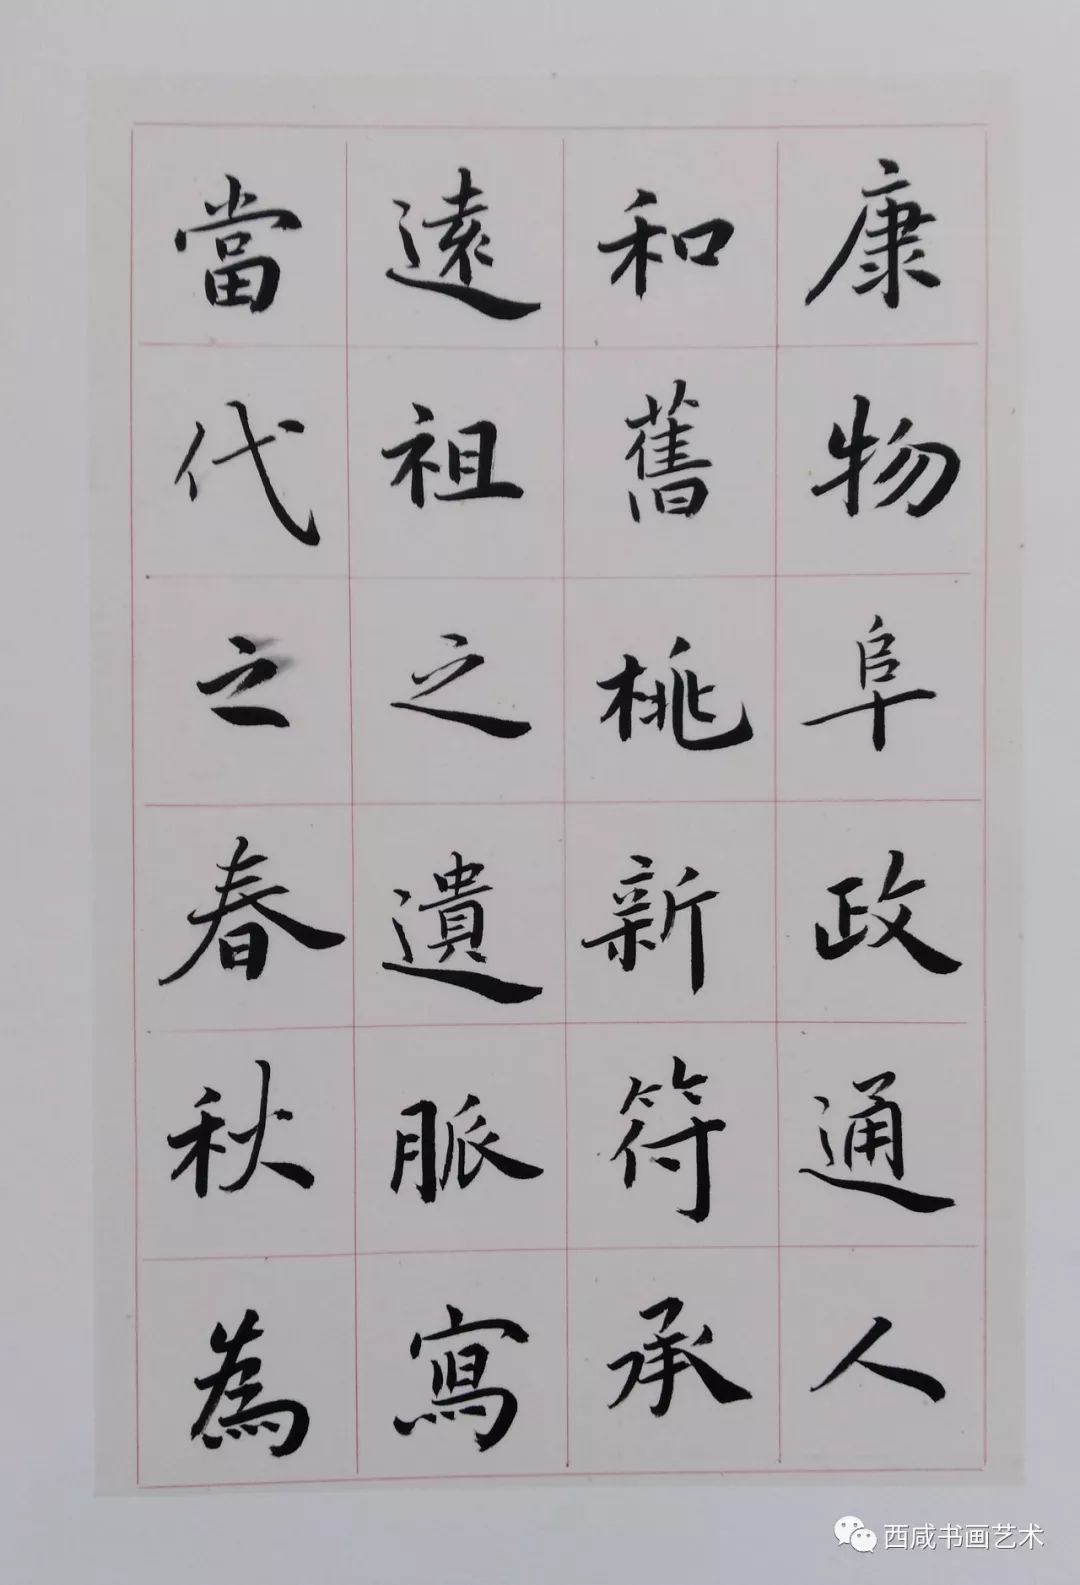 康物阜政通人
和舊桃新符承
遠祖之遺脈寫
當代之春秋為
西咸书画艺术